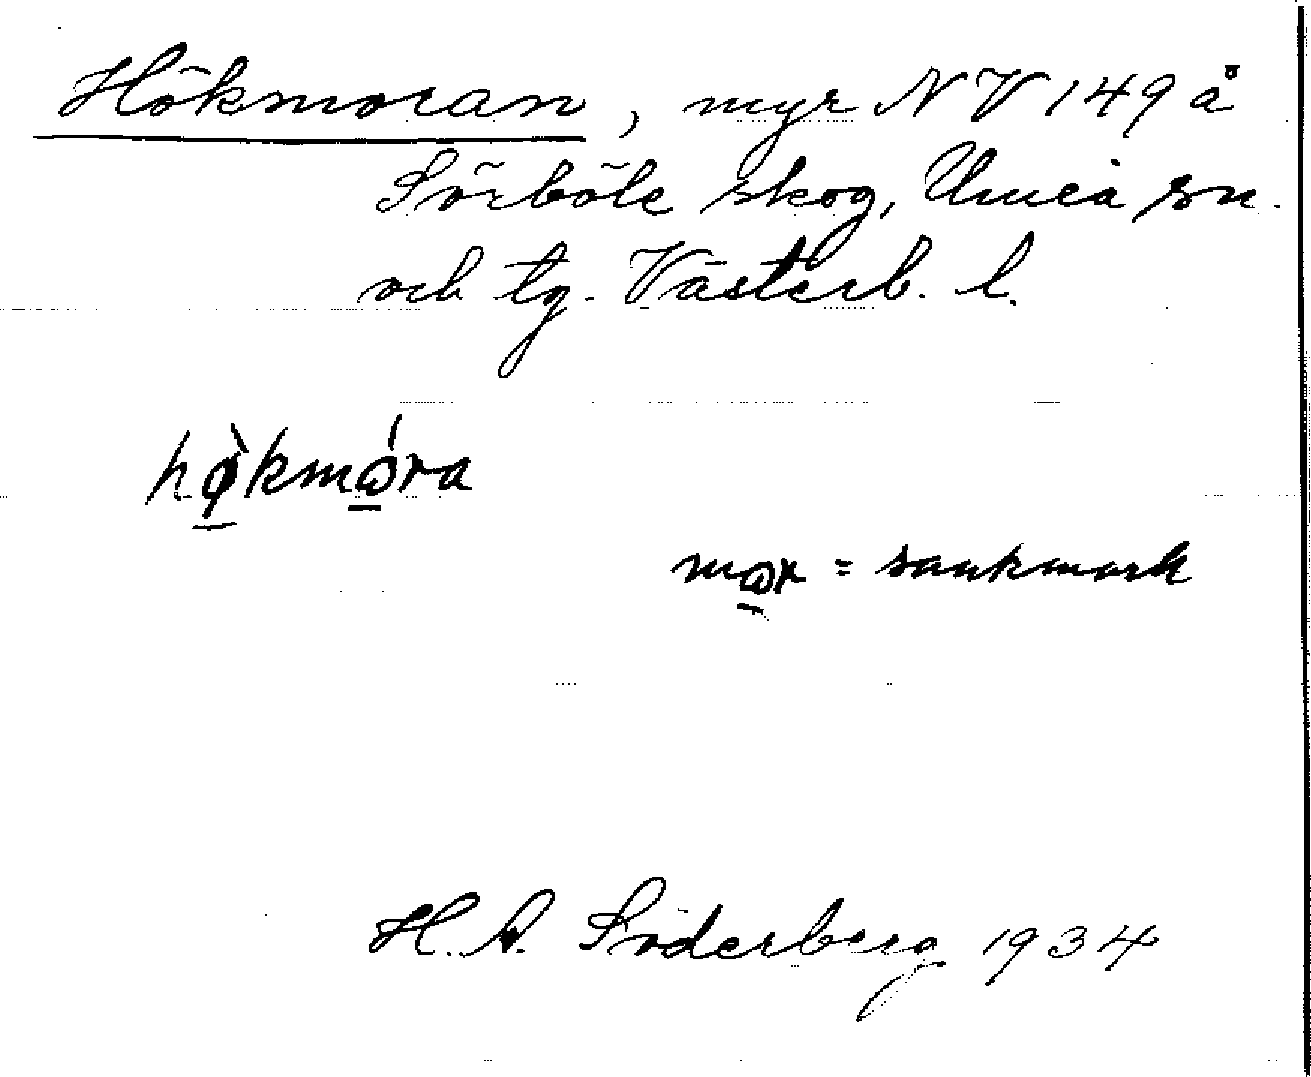 Hökmoran, myr NV 149 å
Sörböle skog, Umeå sn.
och tg. Västerb. l.
hø̱̀kmώ̱ra
mω̱r = sankmark
H. A. Söderberg 1934